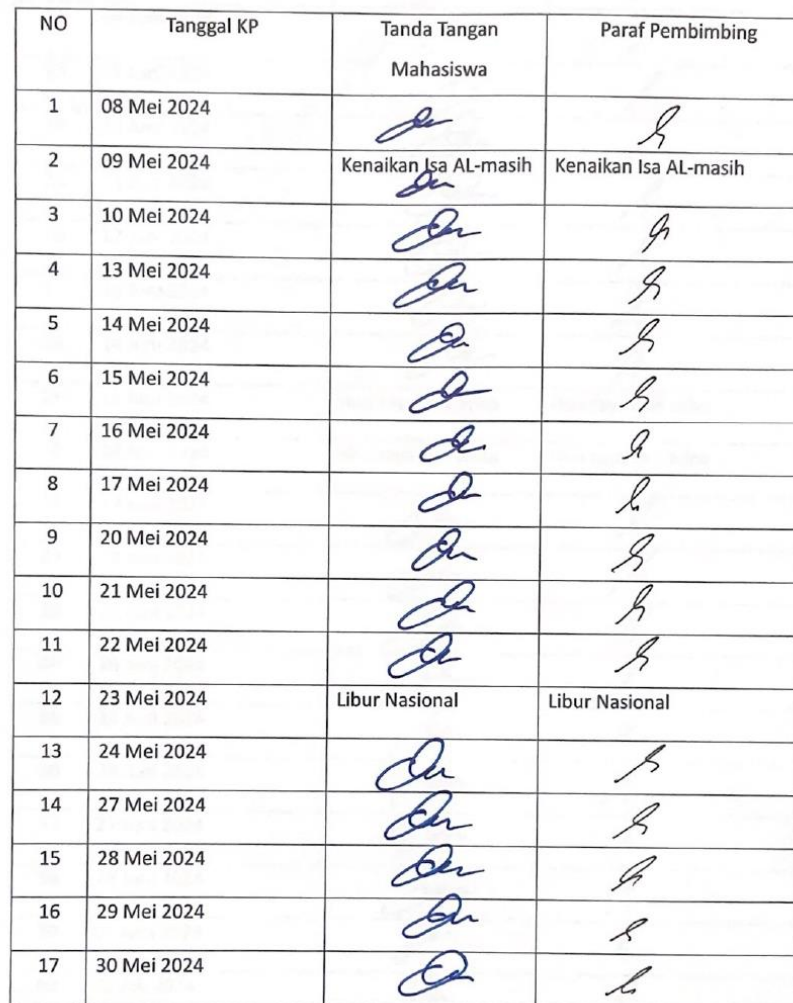 NO Tanggal KP Tanda Tangan Mahasiswa Paraf Pembimbing
1 08 Mei 2024
2 09 Mei 2024 Kenaikan Isa AL-masih Kenaikan Isa AL-masih
3 10 Mei 2024
4 13 Mei 2024
5 14 Mei 2024
6 15 Mei 2024
7 16 Mei 2024
8 17 Mei 2024
9 20 Mei 2024
10 21 Mei 2024
11 22 Mei 2024
12 23 Mei 2024 Libur Nasional Libur Nasional
13 24 Mei 2024
14 27 Mei 2024
15 28 Mei 2024
16 29 Mei 2024
17 30 Mei 2024